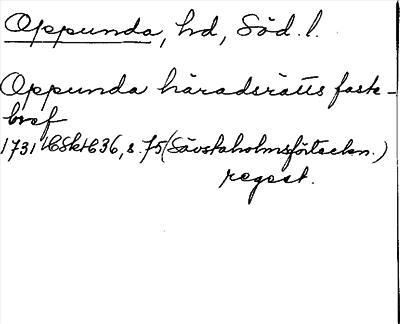 Oppunda, hd, Söd. l.
Oppunda häradsrätts faste-
bref
1731 16/8 Sk 136, s. 75 (Sävstaholmsförteckn.)
regest.